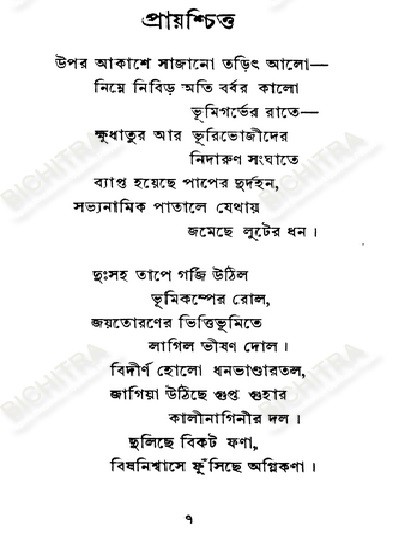 প্রায়শ্চিত্ত
উপর আকাশে সাজানো তড়িৎ আলো—
নিম্নে নিবিড় অতি বর্বর কালো
ভূমিগর্ভের রাতে—
ক্ষুধাতুর আর ভূরিভোজীদের
নিদারুণ সংঘাতে
ব্যাপ্ত হয়েছে পাপের দুর্দহন,
সভ্যনামিক পাতালে যেথায়
জমেছে লুটের ধন।
দুঃসহ তাপে গর্জি উঠিল
ভূমিকম্পের রোল,
জয়তোরণের ভিত্তিভূমিতে
লাগিল ভীষণ দোল।
বিদীর্ণ হোলো ধনভাণ্ডারতল,
জাগিয়া উঠিছে গুপ্ত গুহার
কালীনাগিনীর দল।
দুলিছে বিকট ফণা,
বিষনিশ্বাসে ফুঁসিছে অগ্নিকণা।
৭
BICHITRA
BICHITRA
BICHITRA
BICHITRA